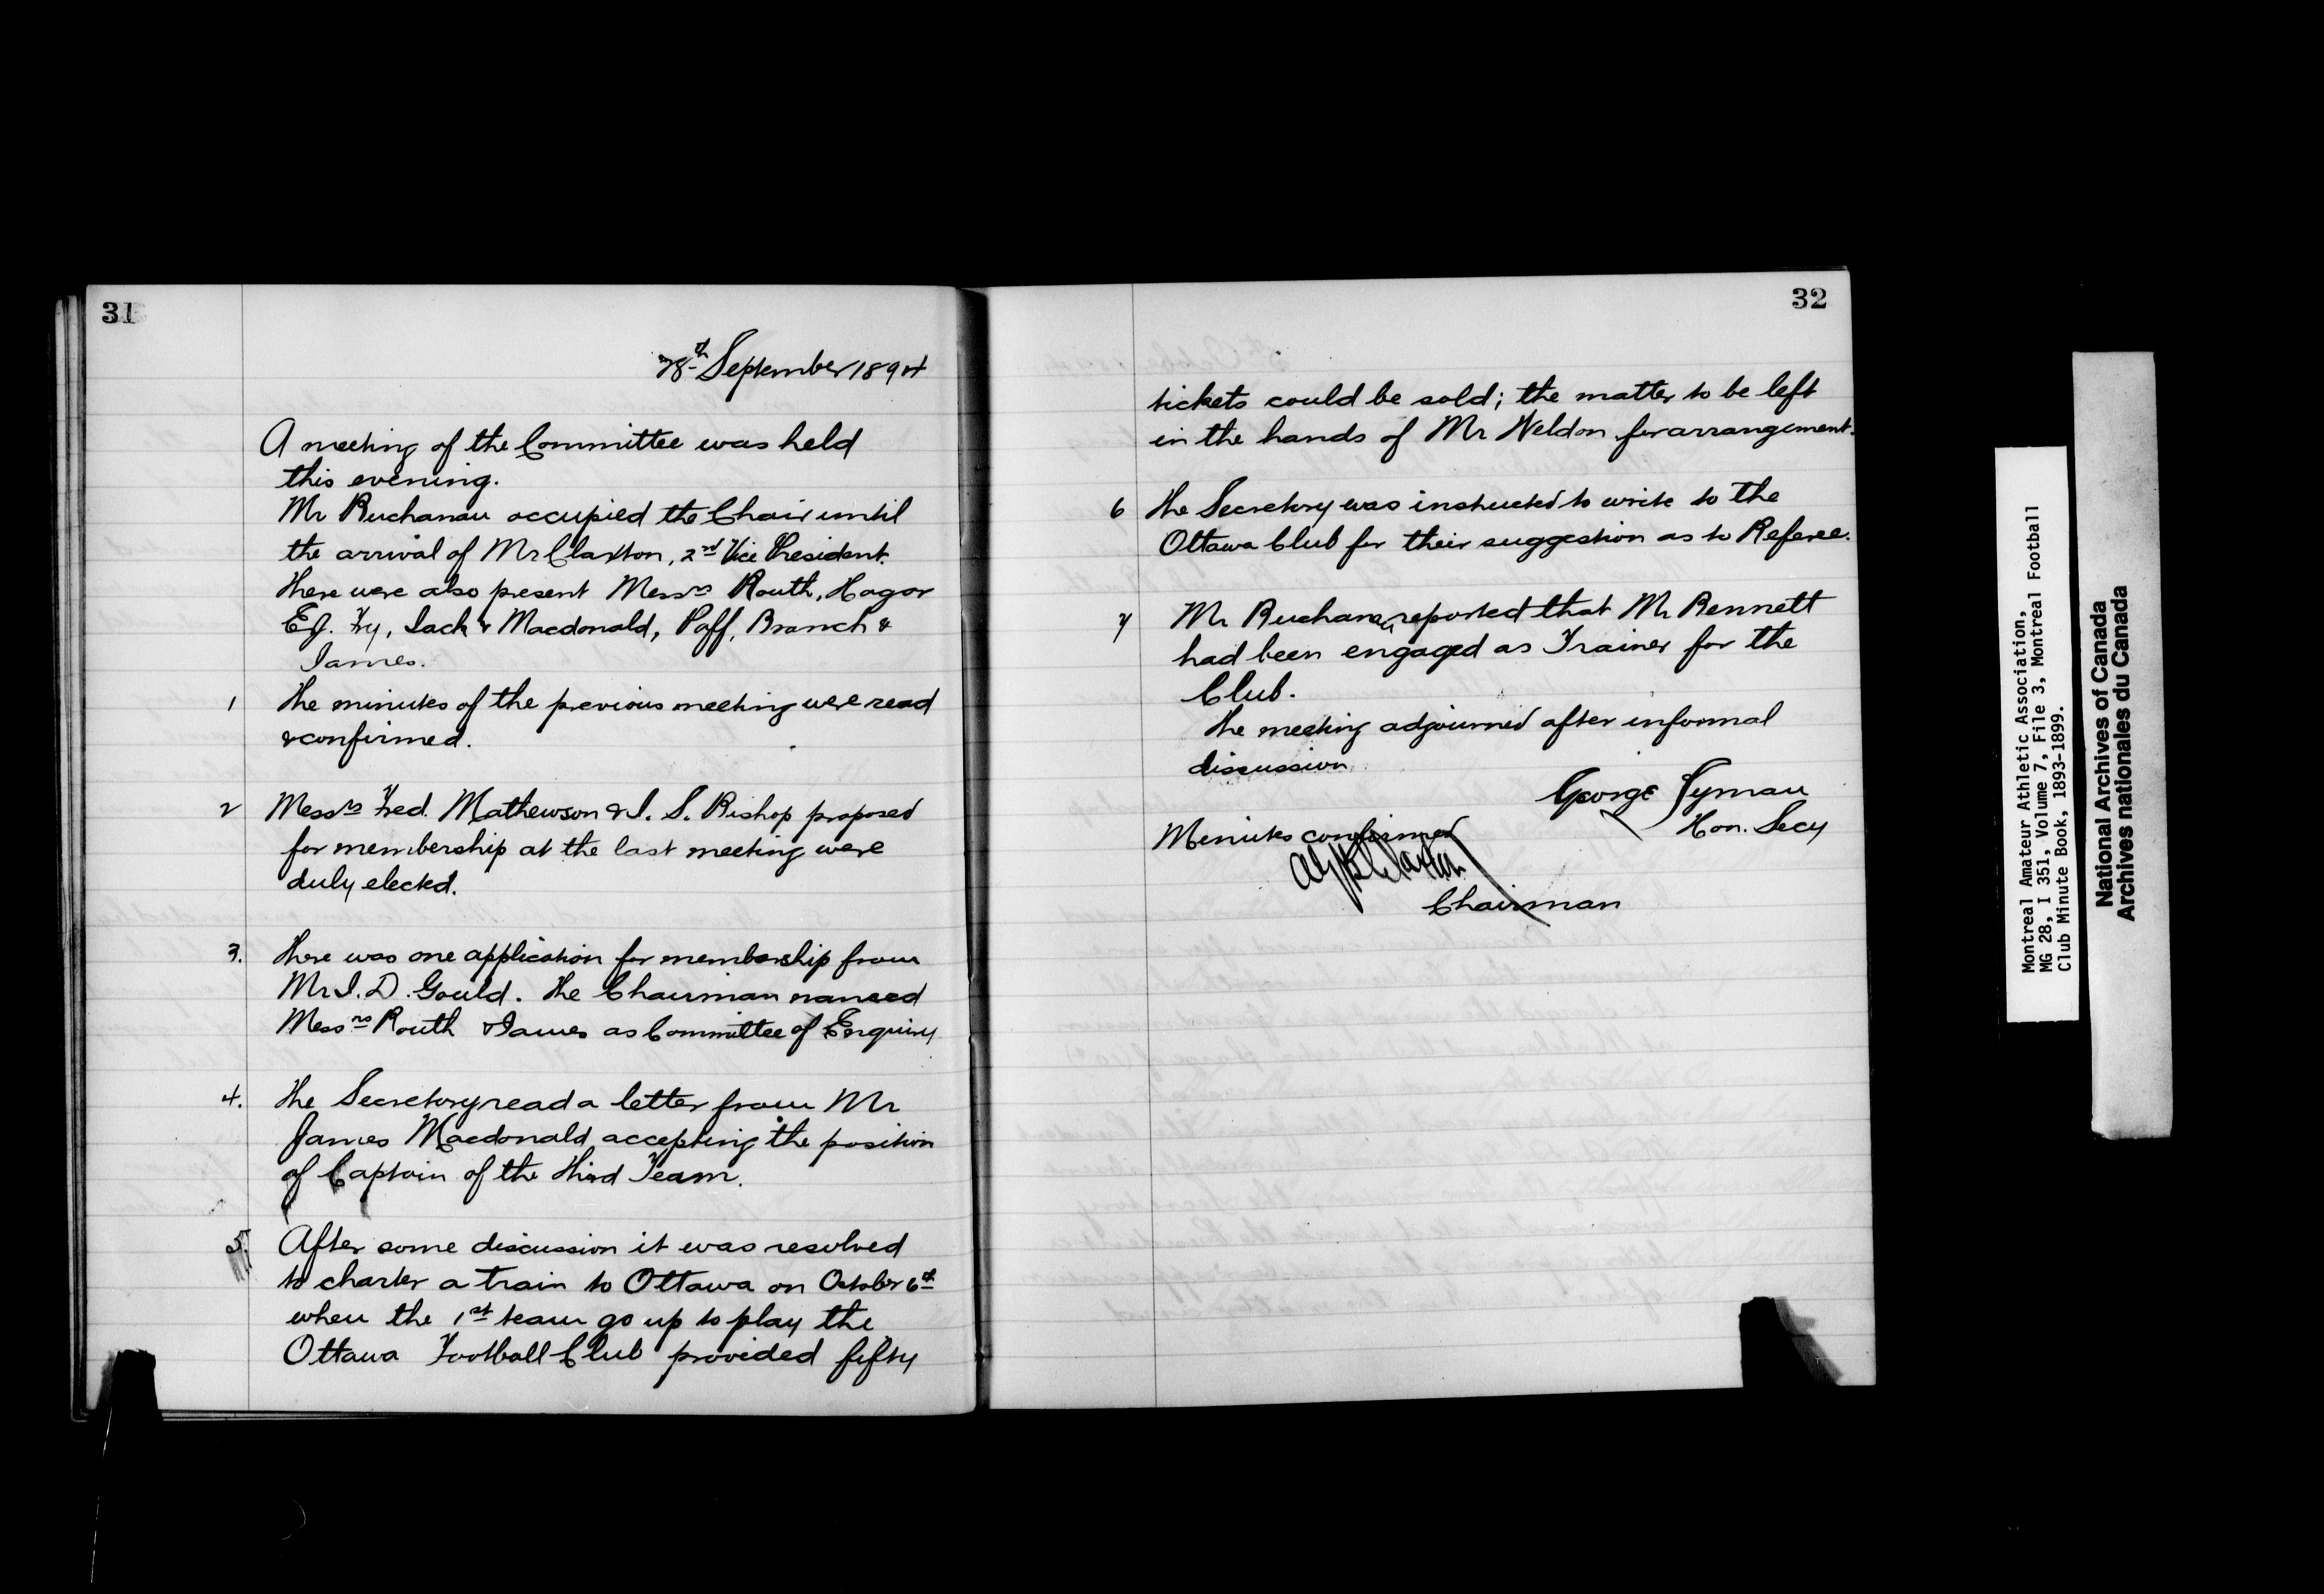 31
28th September 1894
A meeting of the Committee was held
this evening.
Mr Buchanan occupied the Chair until
the arrival of Mr Claxton, 2nd Vice President.
There were also present Messrs Routh, Hagar
E.J. Fry, Jack & Macdonald, Poff, Branch &
James.
1 The minutes of the previous meeting were read
& confirmed.
2 Messrs Fred. Mathewson & J. S. Bishop proposed
for membership at the last meeting were
duly elected.
3. There was one application for membership from
Mr J. D. Gould. The Chairman named
Messrs Routh & James as Committee of Enquiry
4. The Secretary read a letter from Mr
James Macdonald accepting the position
of Captain of the Third Team.
5. After some discussion it was resolved
to charter a train to Ottawa on October 6th
when the 1st team go up to play the
Ottawa Football Club provided fifty
32
tickets could be sold; the matter to be left
in the hands of Mr Weldon for arrangement.
6 The Secretary was instructed to write to the
Ottawa Club for their suggestion as to Referee.
7 Mr Buchanan reported that Mr Bennett
had been engaged as Trainer for the
Club.
The meeting adjourned after informal
discussion
George Lyman
Hon. Secy
Minutes confirmed
Claxton
Chairman
Montreal Amateur Athletic Association,
MG 28, I 351, Volume 7, File 3, Montreal Football
Club Minute Book, 1893-1899.
National Archives of Canada
Archives nationales du Canada